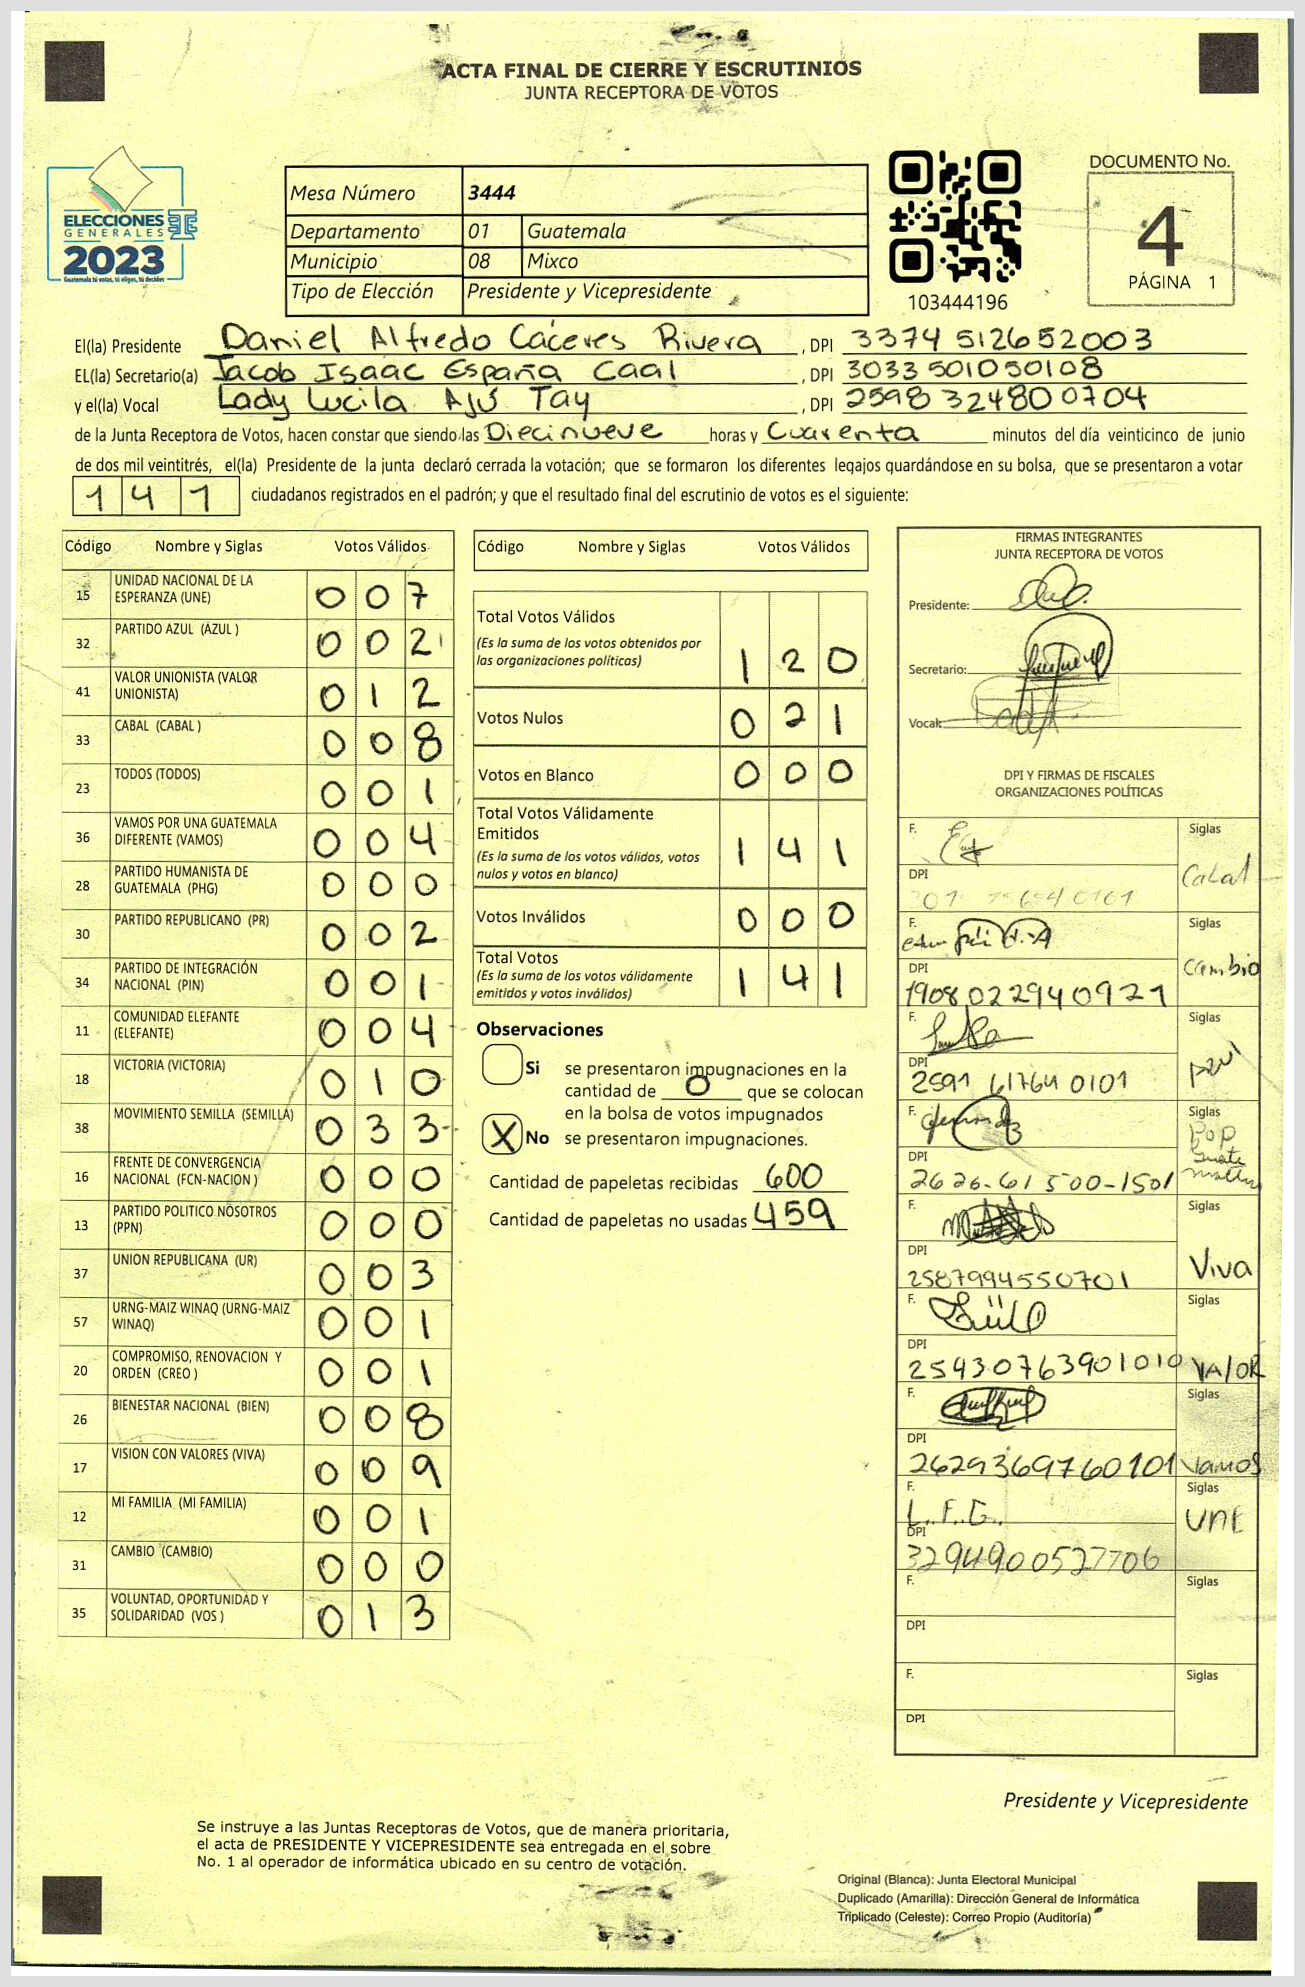 ACTA FINAL DE CIERRE Y ESCRUTINIOS
JUNTA RECEPTORA DE VOTOS
ELECCIONES
GENERALES
2023
Guatemala tú votas, tú eliges, tú decides
Mesa Número 3444
Departamento 01 Guatemala
Municipio 08 Mixco
Tipo de Elección Presidente y Vicepresidente
103444196
DOCUMENTO No.
4
PÁGINA 1
El(la) Presidente Daniel Alfredo Cáceres Rivera , DPI 3374 512652003
EL(la) Secretario(a) Jacob Isaac España Caal , DPI 3033501050108
y el(la) Vocal Lady Lucila Ajú Tay , DPI 2598 324800704
de la Junta Receptora de Votos, hacen constar que siendo las Diecinueve horas y Cuarenta minutos del día veinticinco de junio
de dos mil veintitrés, el(la) Presidente de la junta declaró cerrada la votación; que se formaron los diferentes legajos guardándose en su bolsa, que se presentaron a votar
141 ciudadanos registrados en el padrón; y que el resultado final del escrutinio de votos es el siguiente:
Código Nombre y Siglas Votos Válidos
15 UNIDAD NACIONAL DE LA ESPERANZA (UNE) 0 0 7
32 PARTIDO AZUL (AZUL ) 0 0 2
41 VALOR UNIONISTA (VALOR UNIONISTA) 0 1 2
33 CABAL (CABAL ) 0 0 8
23 TODOS (TODOS) 0 0 1
36 VAMOS POR UNA GUATEMALA DIFERENTE (VAMOS) 0 0 4
28 PARTIDO HUMANISTA DE GUATEMALA (PHG) 0 0 0
30 PARTIDO REPUBLICANO (PR) 0 0 2
34 PARTIDO DE INTEGRACIÓN NACIONAL (PIN) 0 0 1
11 COMUNIDAD ELEFANTE (ELEFANTE) 0 0 4
18 VICTORIA (VICTORIA) 0 1 0
38 MOVIMIENTO SEMILLA (SEMILLA) 0 3 3
16 FRENTE DE CONVERGENCIA NACIONAL (FCN-NACION ) 0 0 0
13 PARTIDO POLITICO NOSOTROS (PPN) 0 0 0
37 UNION REPUBLICANA (UR) 0 0 3
57 URNG-MAIZ WINAQ (URNG-MAIZ WINAQ) 0 0 1
20 COMPROMISO, RENOVACION Y ORDEN (CREO ) 0 0 1
26 BIENESTAR NACIONAL (BIEN) 0 0 8
17 VISION CON VALORES (VIVA) 0 0 9
12 MI FAMILIA (MI FAMILIA) 0 0 1
31 CAMBIO (CAMBIO) 0 0 0
35 VOLUNTAD, OPORTUNIDAD Y SOLIDARIDAD (VOS ) 0 1 3
Código Nombre y Siglas Votos Válidos
Total Votos Válidos
(Es la suma de los votos obtenidos por
las organizaciones políticas) 1 2 0
Votos Nulos 0 2 1
Votos en Blanco 0 0 0
Total Votos Válidamente
Emitidos
(Es la suma de los votos válidos, votos
nulos y votos en blanco) 1 4 1
Votos Inválidos 0 0 0
Total Votos
(Es la suma de los votos válidamente
emitidos y votos inválidos) 1 4 1
Observaciones
Si se presentaron impugnaciones en la
cantidad de 0 que se colocan
en la bolsa de votos impugnados
X No se presentaron impugnaciones.
Cantidad de papeletas recibidas 600
Cantidad de papeletas no usadas 459
FIRMAS INTEGRANTES
JUNTA RECEPTORA DE VOTOS
Presidente:
Secretario:
Vocal:
DPI Y FIRMAS DE FISCALES
ORGANIZACIONES POLÍTICAS
F. Siglas
DPI Cabal
F. Siglas
DPI Cambio
1908022940921
F. Siglas
DPI Azul
2591 61764 0101
F. Siglas
DPI Pop
2626-61500-1501
F. Siglas
DPI Viva
2587994550701
F. Siglas
DPI
25430763901010 VALOR
F. Siglas
DPI
2629369760101 Vamos
F. L.F.G. Siglas
DPI UNE
3294900527706
F. Siglas
DPI
F. Siglas
DPI
Presidente y Vicepresidente
Se instruye a las Juntas Receptoras de Votos, que de manera prioritaria,
el acta de PRESIDENTE Y VICEPRESIDENTE sea entregada en el sobre
No. 1 al operador de informática ubicado en su centro de votación.
Original (Blanca): Junta Electoral Municipal
Duplicado (Amarilla): Dirección General de Informática
Triplicado (Celeste): Correo Propio (Auditoría)